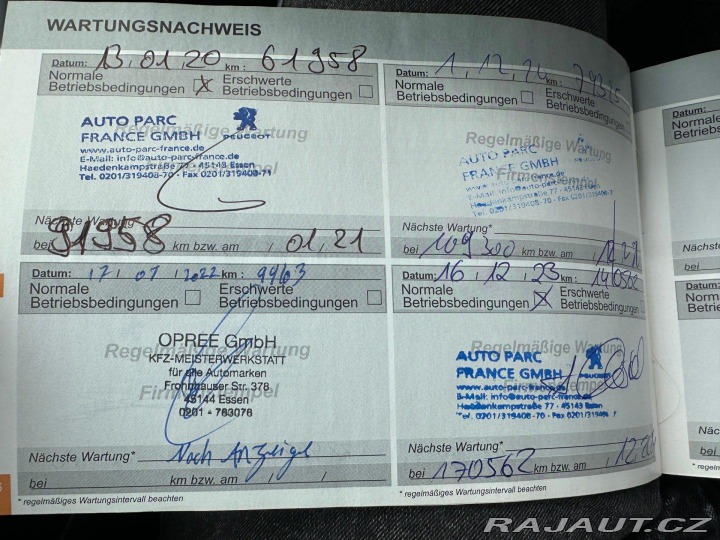 WARTUNGSNACHWEIS
Datum: 13.01.20 km: 61958
Normale Betriebsbedingungen Erschwerte Betriebsbedingungen
Regelmäßige Wartung
AUTO PARC
FRANCE GMBH PEUGEOT
www.auto-parc-france.de
E-Mail: info@auto-parc-france.de
Haedenkampstraße 77 · 45143 Essen
Tel. 0201/319408-70 · Fax 0201/319408-71
Nächste Wartung*
bei 91958 km bzw. am 01.21
Datum: 1.12.20 km:
Normale Betriebsbedingungen Erschwerte Betriebsbedingungen
Regelmäßige Wartung
Firmenstempel
AUTO PARC
FRANCE GMBH
www.auto-parc-france.de
E-Mail: info@auto-parc-france.de
Haedenkampstraße 77 · 45143 Essen
Tel. 0201/319408-70 · Fax 0201/319408-7
Nächste Wartung*
bei 109300 km bzw. am
Datum: 17.01.2022 km: 9963
Normale
Betriebsbedingungen
Erschwerte
Betriebsbedingungen
Regelmäßige Wartung
Firmenstempel
OPREE GmbH
KFZ-MEISTERWERKSTATT
für alle Automarken
Frohnhauser Str. 378
45144 Essen
0201 - 763076
Nächste Wartung* Nach Anzeige
bei km bzw. am
* regelmäßiges Wartungsintervall beachten
Datum: 16.12.23 km: 140562
Normale
Betriebsbedingungen
Erschwerte
Betriebsbedingungen
Regelmäßige Wartung
Firmenstempel
AUTO PARC
FRANCE GMBH PEUGEOT
www.auto-parc-france.de
E-Mail: info@auto-parc-france.de
Haedenkampstraße 77 · 45143 Essen
Tel. 0201/319408-70 · Fax 0201/319408-71
Nächste Wartung*
bei 170562 km bzw. am
* regelmäßiges Wartungsintervall beachten
Datum:
Normale
Nächste
bei
Datum:
Normale
Betriebsb
Nächste
bei
RAJAUT.CZ